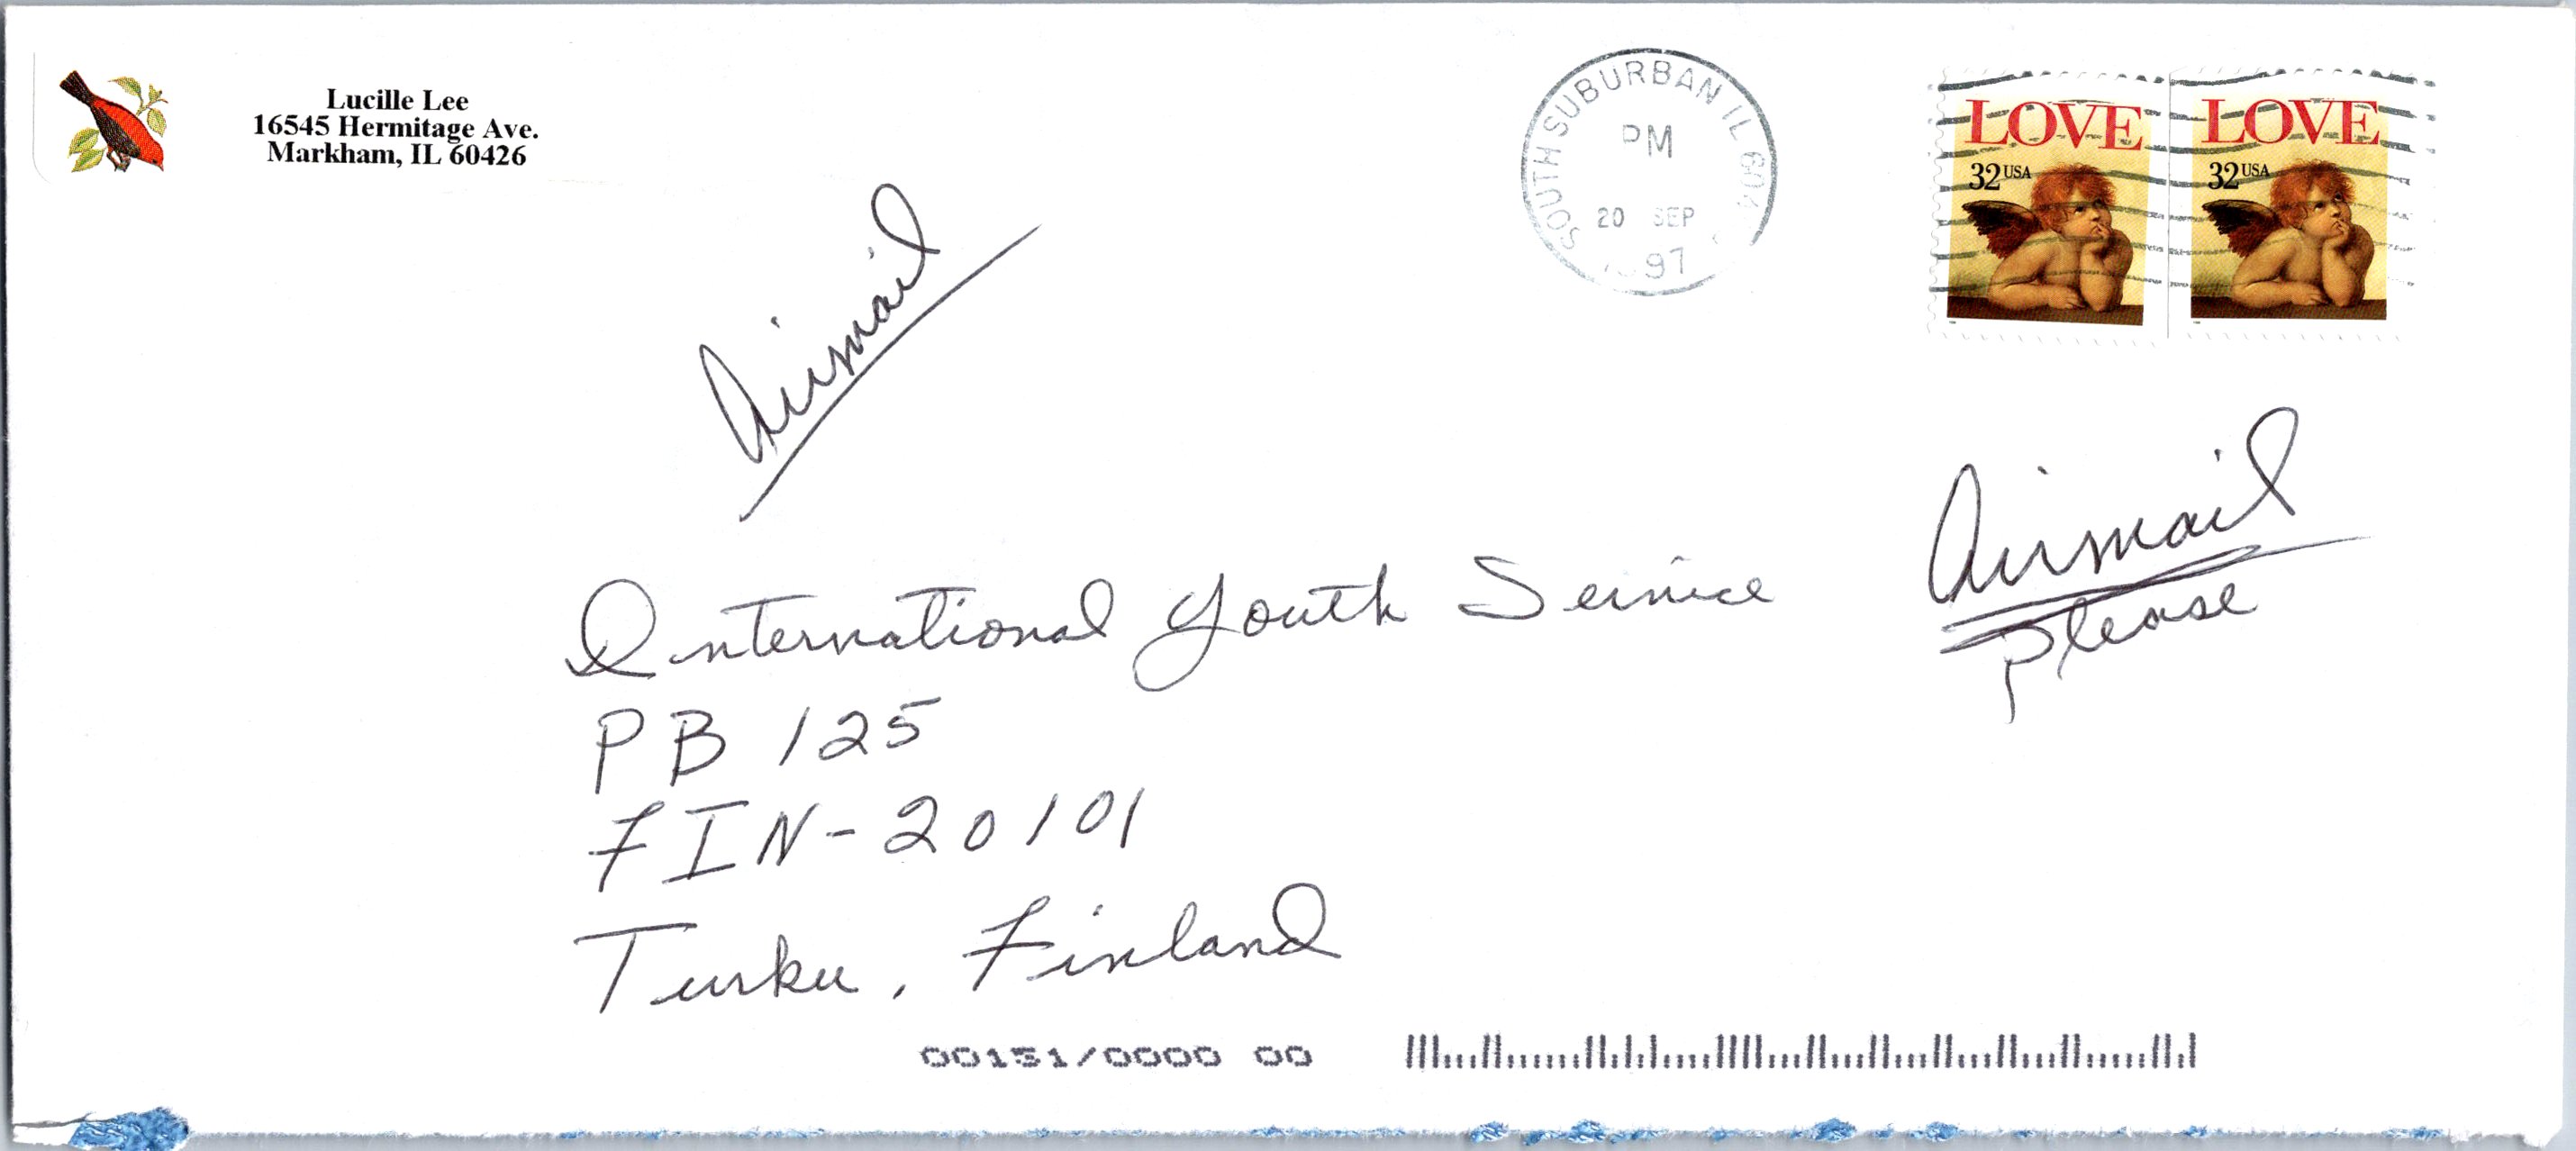 Lucille Lee
16545 Hermitage Ave.
Markham, IL 60426
SOUTH SUBURBAN IL 604
PM
20 SEP
1997
LOVE
32 USA
LOVE
32 USA
Airmail
Airmail
please
International Youth Service
PB 125
FIN-20101
Turku, Finland
00151/0000 00